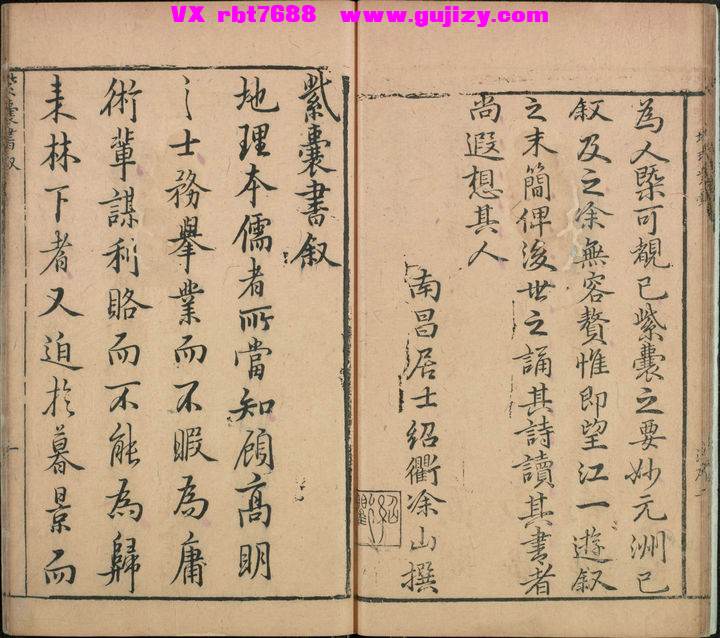 VX rbt7688  www.gujizy.com
為人槩可覩已紫囊之要妙元洲已
叙及之余無容贅惟即望江一遊叙
之末簡俾後世之誦其詩讀其書者
尚遐想其人
南昌居士紹衢凃山撰
紫囊書叙
地理本儒者所當知顧高明
之士務舉業而不暇為庸
術輩謀利賂而不能為歸
来林下者又迫於暮景而
紫囊書叙
一